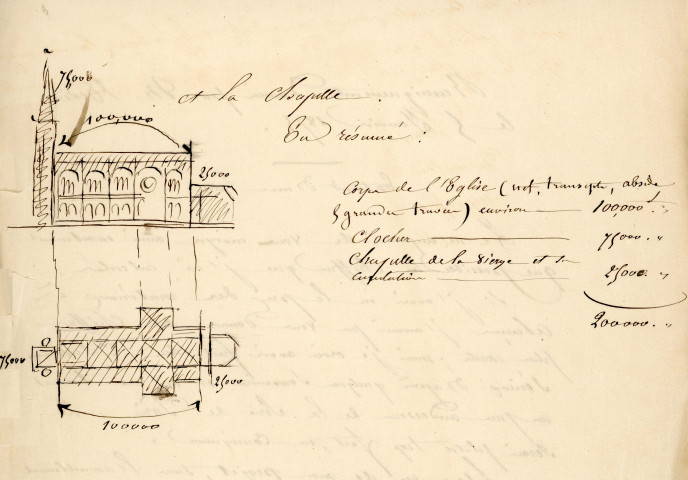 75000
100,000
25000
et la chapelle.
En résumé :
Corps de l'Eglise (nef, transepts, abside
grandes travées) environ — 100,000 . "
Clocher — 75000. "
Chapelle de la Vierge et sa
— 25000. "
200000. "
75000
25000
100000